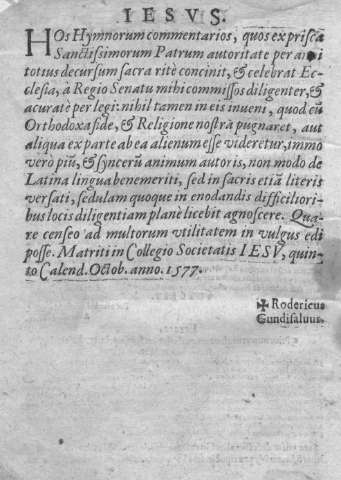 IESVS.
HOs Hymnorum commentarios, quos ex prisca
Sanctissimorum Patrum autoritate per anni
totius decursum sacra ritè concinit, & celebrat Ec-
clesia, à Regio Senatu mihi commissos diligenter, &
acuratè per legi: nihil tamen in eis inueni, quod cū
Orthodoxa fide, & Religione nostrà pugnaret, aut
aliqua ex parte ab ea alienum esse videretur, immo
vero piū, & syncerū animum autoris, non modo de
Latina lingua benemeriti, sed in sacris etiā literis
versati, sedulam quoque in enodandis difficiliori-
bus locis diligentiam planè licebit agnoscere. Qua-
re censeo ad multorum vtilitatem in vulgus edi
posse. Matriti in Collegio Societatis IESV, quin-
to Calend. Octob. anno. 1577.
✠ Rodericus
Gundisaluus.